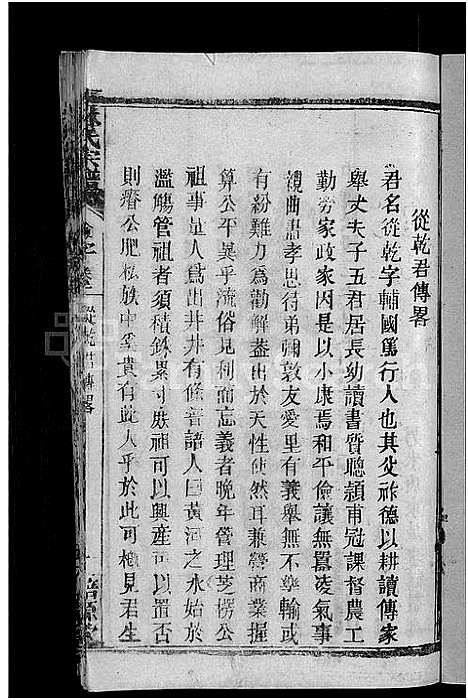 從乾君傳畧
君名從乾字輔國篤行人也其父祚德以耕讀傳家
舉丈夫子五君居長幼讀書質聰頴甫冠課督農工
勤勞家政家因是以小康焉和平儉讓無囂凌氣事
親曲盡孝思待弟彌敦友愛里有義舉無不樂輸或
有紛難力爲勸解蓋出於天性使然耳兼營商業握
算公平異乎流俗見利而忘義者晚年管理芝楞公
祖事量入爲出井井有條嘗語人曰黃河之水始於
濫觴管祖者須積銖累寸族祖可以興產可以置否
則瘠公肥私族中奚貴有此人乎於此可想見君生
氏宗譜
從乾君傳畧